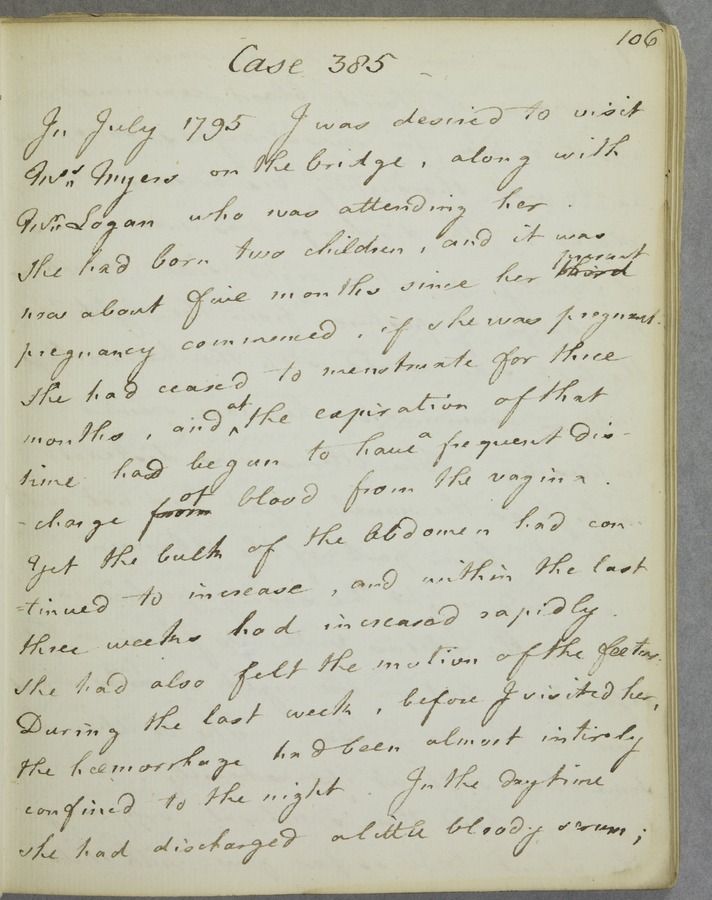 106
Case 385
In July 1795 I was desired to visit
Mrs Myers on the bridge, along with
Mr Logan who was attending her.
She had born two children, and it was
now about five months since her third present
pregnancy commenced, if she was pregnant.
She had ceased to menstruate for three
months, and at the expiration of that
time had begun to have a frequent dis-
-charge from of blood from the vagina.
Yet the bulk of the Abdomen had con-
-tinued to increase, and within the last
three weeks had increased rapidly.
She had also felt the motion of the foetus.
During the last week, before I visited her,
the hœmorrhage had been almost intirely
confined to the night. In the daytime
she had discharged a little bloody serum;